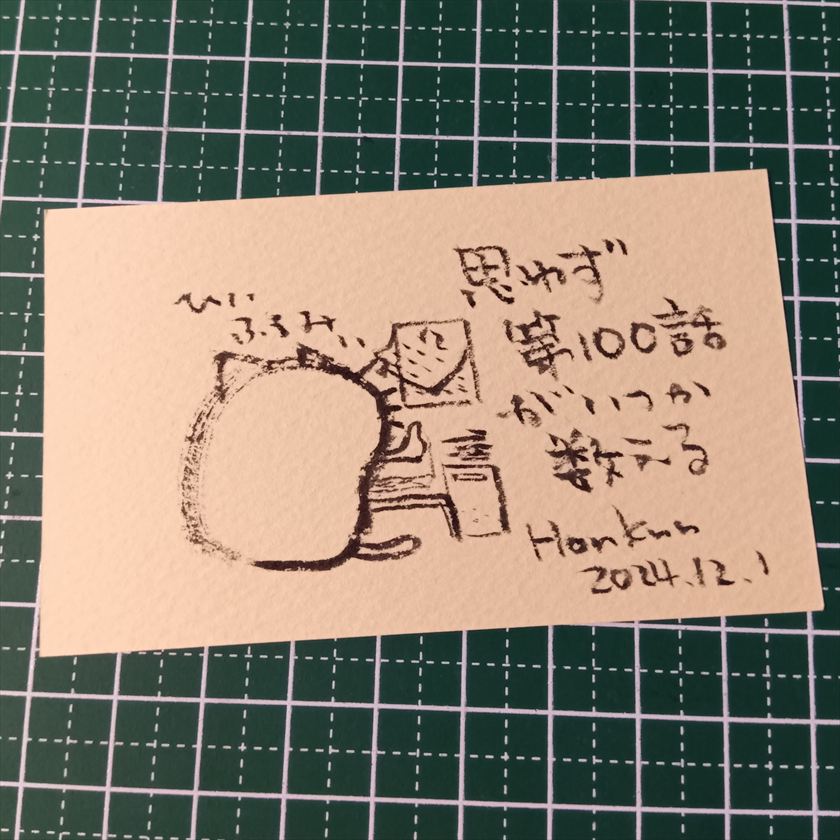 ひい
ふう みい
思わず
第100話
がいつか
数える
Honkun
2024.12.1